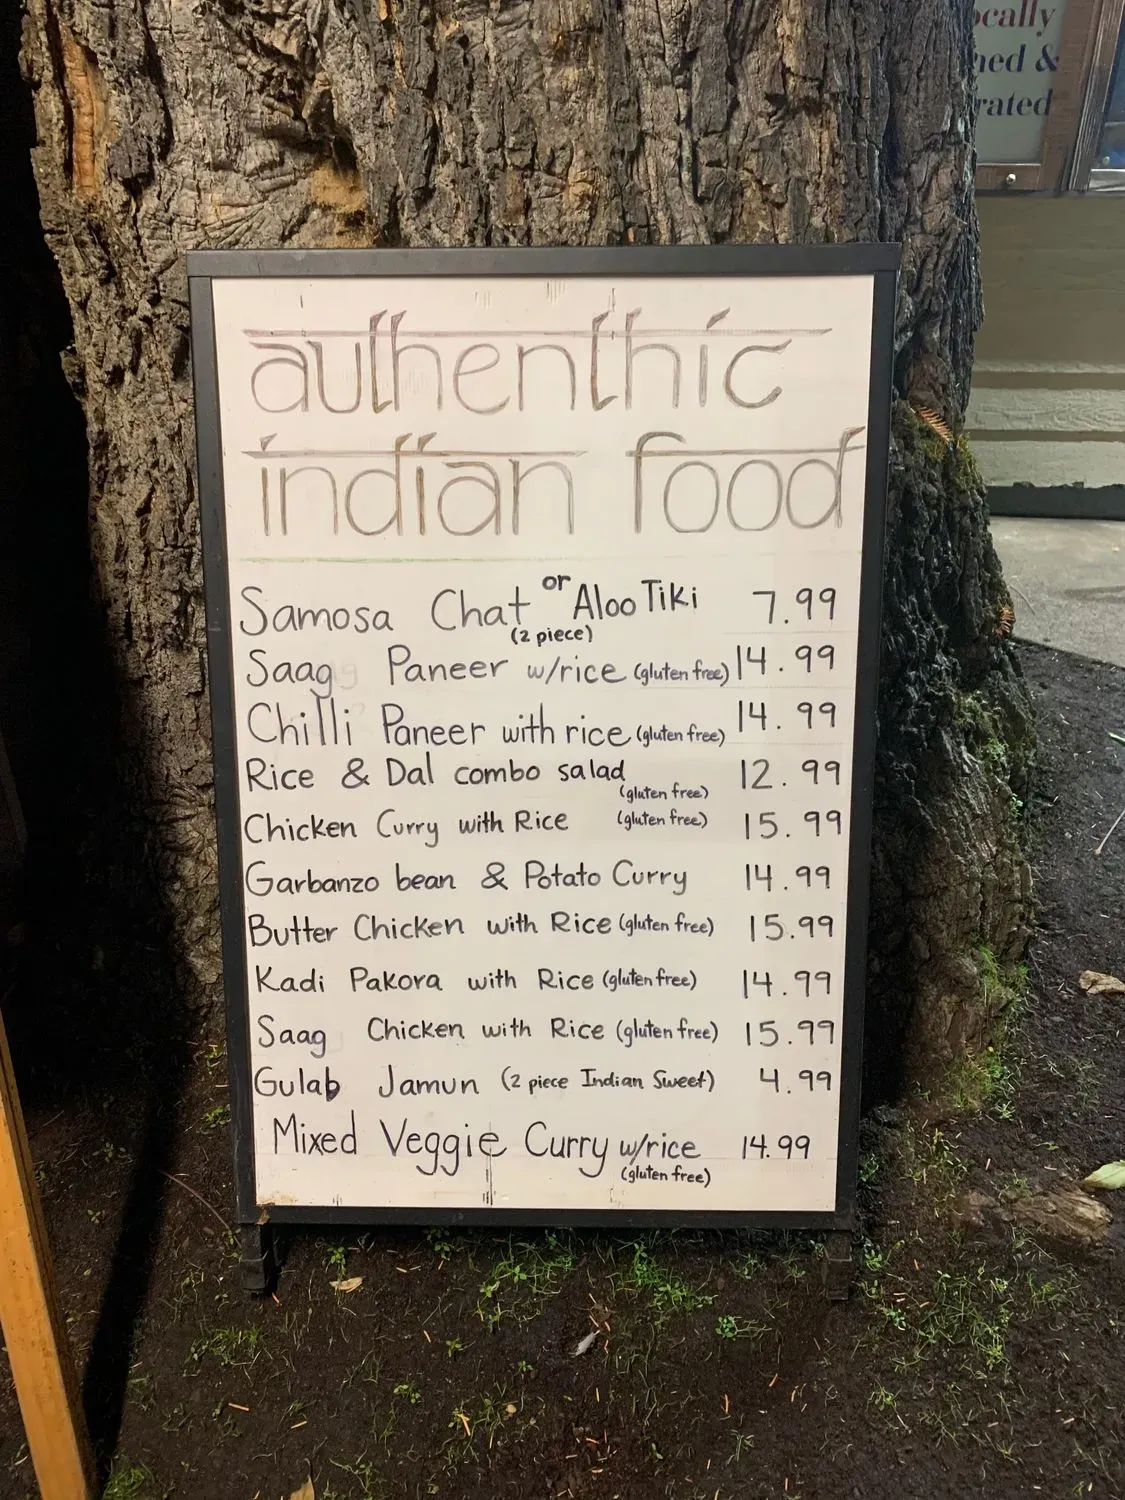 ocally
ned &
rated
authenthic
indian food
Samosa Chat or Aloo Tiki 7.99
(2 piece)
Saag Paneer w/rice (gluten free) 14.99
Chilli Paneer with rice (gluten free) 14.99
Rice & Dal combo salad 12.99
(gluten free)
Chicken Curry with Rice (gluten free) 15.99
Garbanzo bean & Potato Curry 14.99
Butter Chicken with Rice (gluten free) 15.99
Kadi Pakora with Rice (gluten free) 14.99
Saag Chicken with Rice (gluten free) 15.99
Gulab Jamun (2 piece Indian Sweet) 4.99
Mixed Veggie Curry w/rice 14.99
(gluten free)